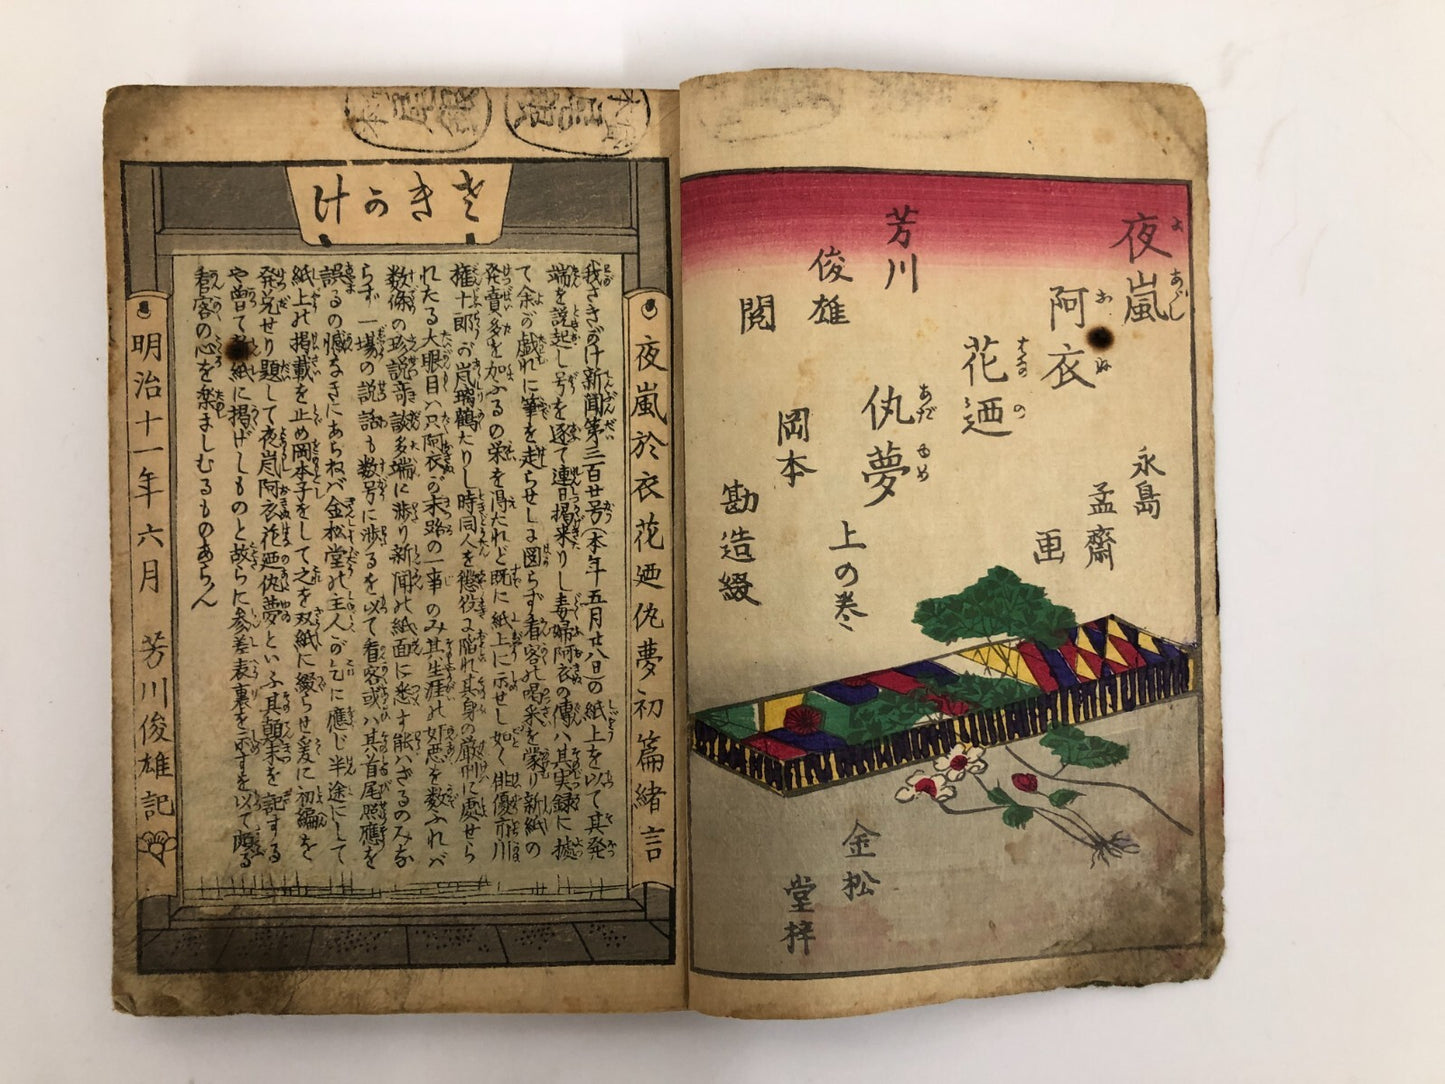 夜嵐
よあらし
阿衣
おきぬ
花廼
はなの
仇夢
あだゆめ
上の巻
芳川
俊雄
閲
岡本
勘造綴
永島
孟齋
画
金松
堂梓
さきがけ
夜嵐於衣花廼仇夢初篇緒言
我さきがけ新聞第三百廿号(本年五月廿八日)の紙上を以て其発
端を説起し号を逐て連日掲来りし毒婦阿衣の傳ハ其実録に據
て余が戯れに筆を走らせしに図らず看客の喝采を蒙り新紙の
発賣多を加ふるの栄を得たれど既に紙上に示せし如く俳優市川
権十郎が嵐璃鶴たりし時同人を懲役に陥れ其身の厳刑に処せら
れたる大眼目ハ只阿衣が末路の一事のみ其生涯の奸悪を数ふれバ
数條の珍説奇談多端に渉り新聞の紙面に悉す能ハざるのみな
らず一場の説話も数号に渉るを以て看客或ハ其首尾照應を
誤るの憾なきにあらねバ金松堂の主人が乞に應じ半途にして
紙上の掲載を止め岡本子をして之を双紙に綴らせ爰に初編を
発兌せり題して夜嵐阿衣花廼仇夢といふ其顛末を記する
や曽て新紙に掲げしものと故らに参差表裏を示すを以て頗る
看客の心を楽ましむるものあらん
明治十一年六月 芳川俊雄記